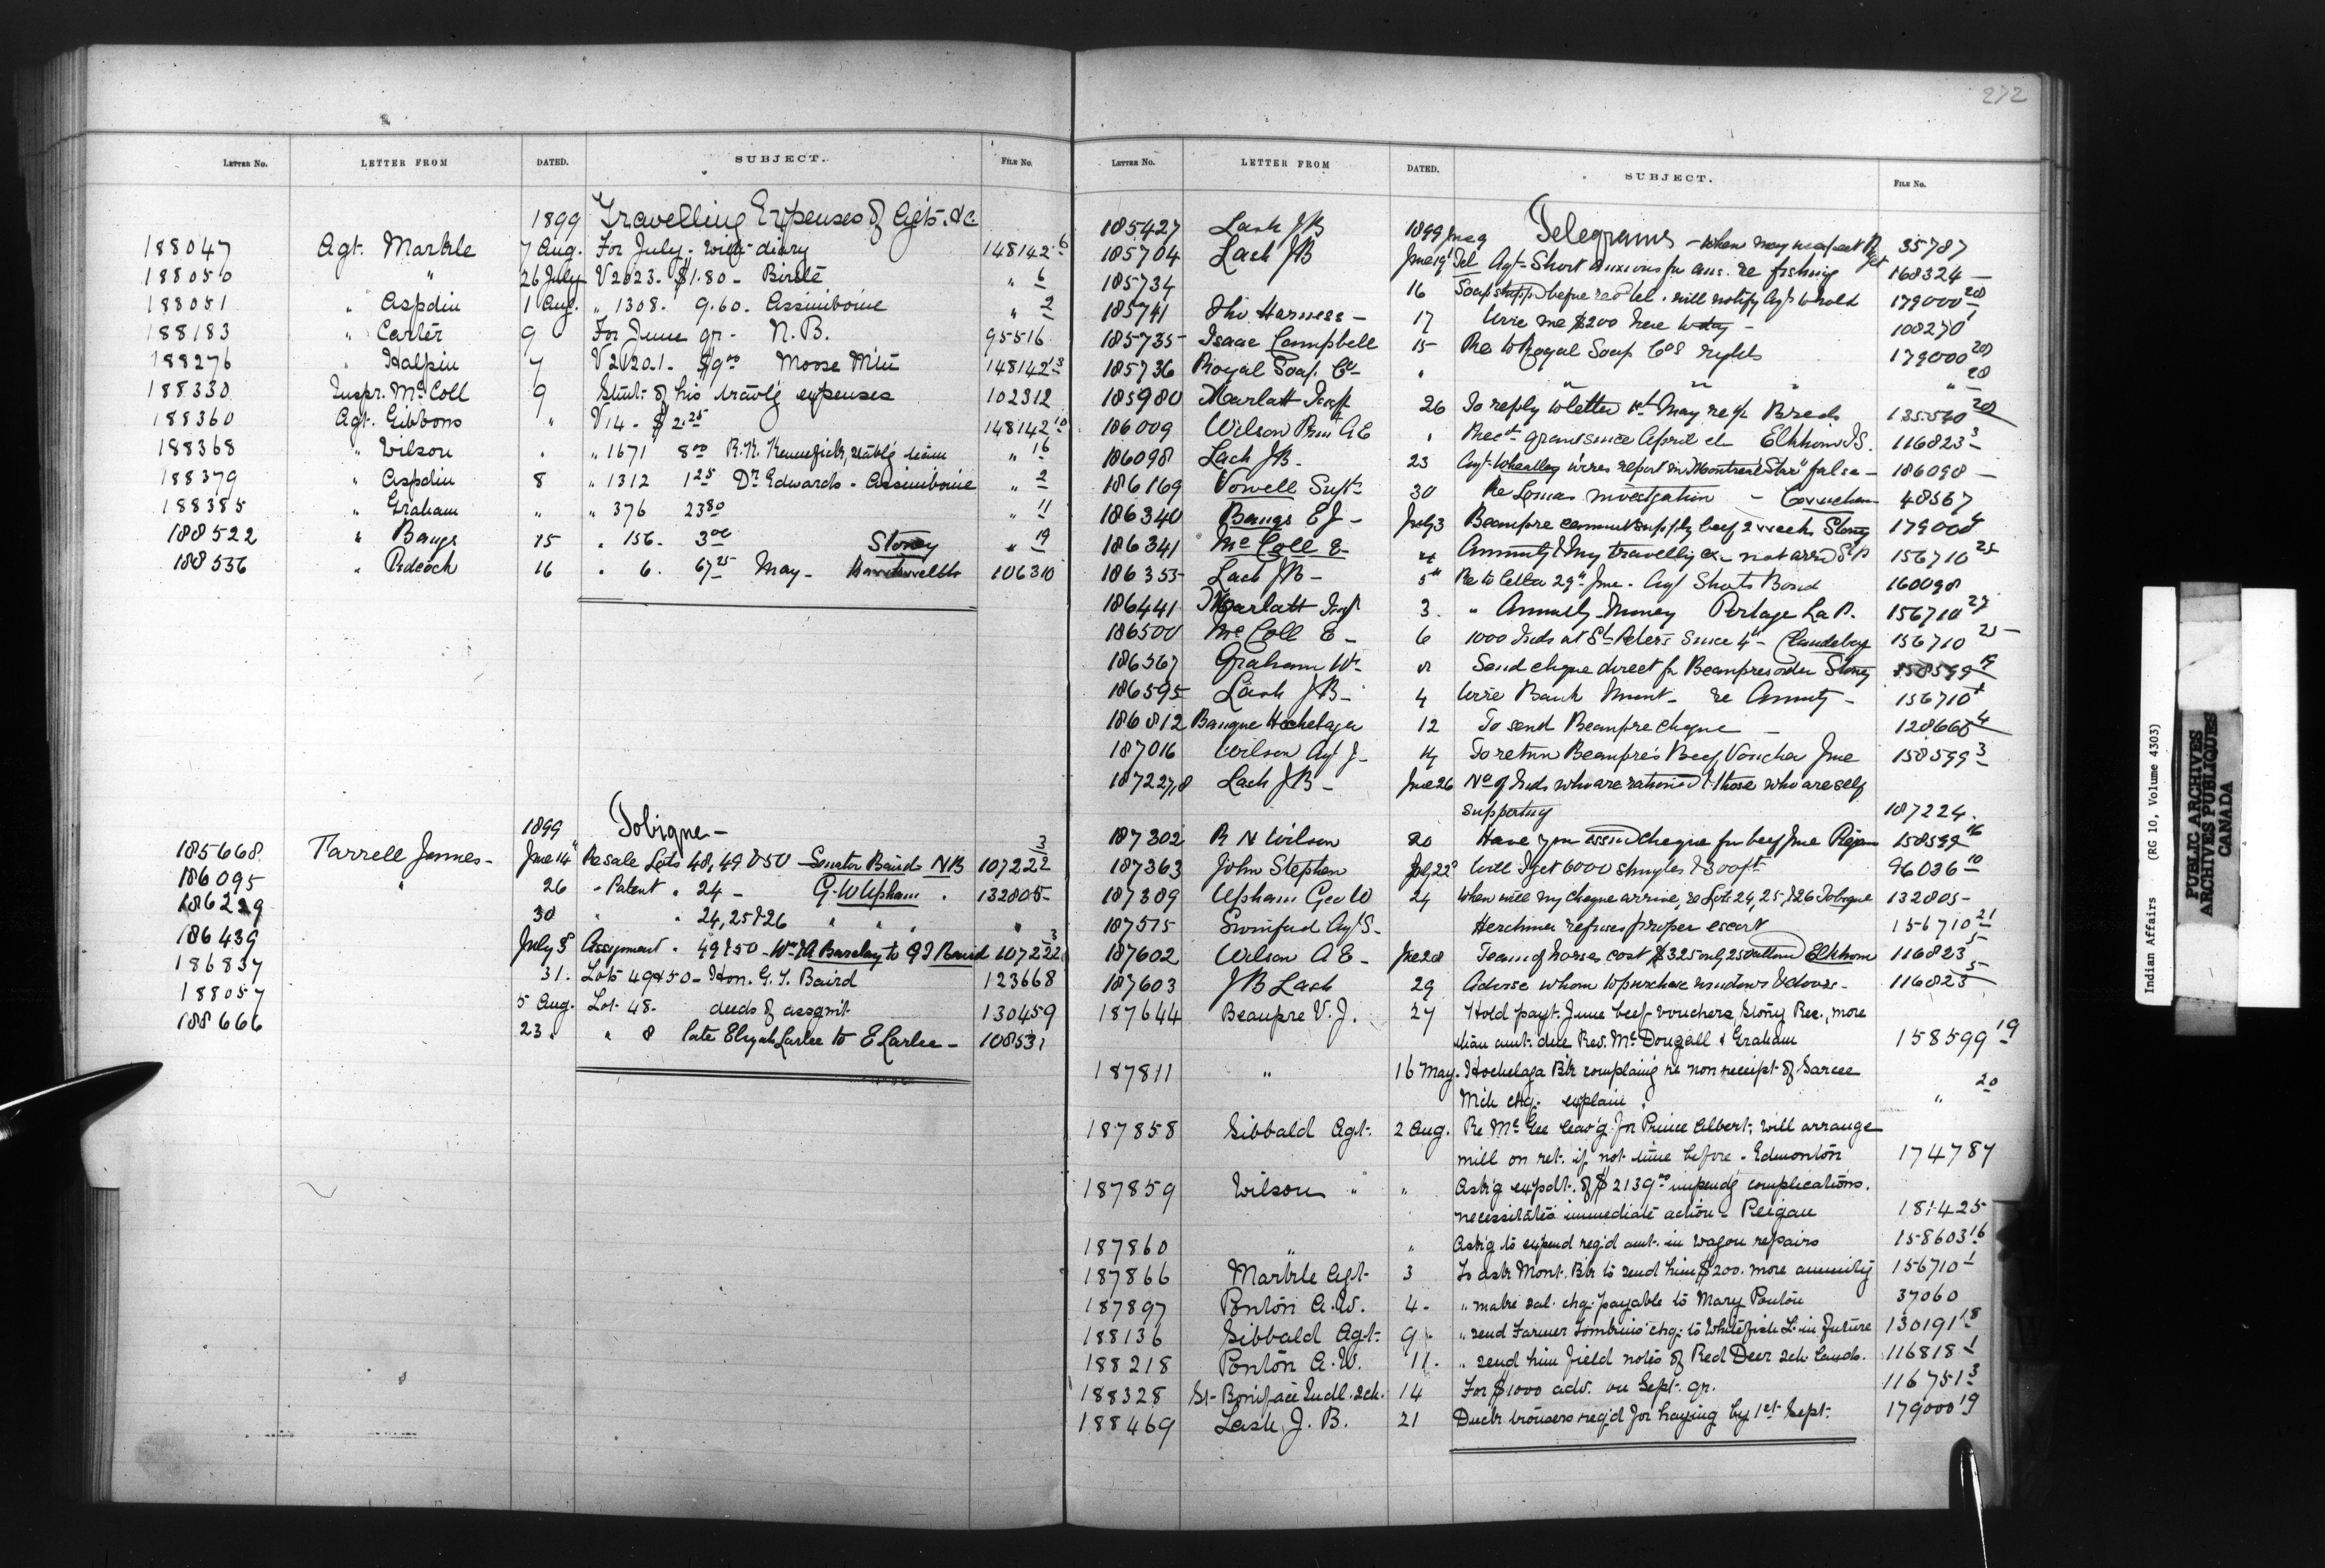 LETTER NO. LETTER FROM DATED. SUBJECT. FILE NO.
1899 Travelling Expenses of Agts. &c.
188047 Agt. Markle 7 Aug. For July - with diary 148142 6
188050 " 26 July V2023. $1.80 - Birtle " 6
188051 " Aspdin 1 Aug. " 1308. 9.60. Assiniboine " 2
188183 " Carter 9 For June qr. N.B. 95516
188276 " Halpin 7 V2120.1. $9.00 Moose Mtn 148142 13
188330 Inspr. McColl 9 Stmt. of his travlg expenses 102312
188360 Agt. Gibbons " V14 - $2.25 148142 10
188368 " Wilson " " 1671 8.00 R.N. team " 16
188379 " Aspdin 8 " 1312 1.25 Dr. Edwards - Assiniboine " 2
188385 " Graham " " 376 23.80 " 11
188522 " Bangs 15 " 156. 3.00 Stoney " 19
188536 " 16 " 6. 67.25 May - 106310
1899 Tobique -
185668 Farrell James - June 14 Re sale Lots 48, 49 & 50 - Senator Baird NB 107222 3
186095 " 26 " Patent " 24 - G. W Upham " 132805 -
186229 30 " " 24, 25 & 26 " " " "
186439 July 3 Assignment " 49 & 50 - Wm A Barclay to G T Baird 107222 3
186837 31. Lots 49 & 50 - Hon. G. T. Baird 123668
188057 5 Aug. Lot 48. deeds of assgmt. 130459
188666 23. " 8 late Elijah Larlee to E Larlee - 108531
272
LETTER NO. LETTER FROM DATED. SUBJECT. FILE NO.
185427 Lash JB 1899 June 9 Telegrams - When may we expect 35787
185704 Lash JB June 19 Tel Agt. Short anxious for ans. re fishing 168324 -
185734 16 Soap shippd before recd tel. will notify Agts to hold 179000 20
185741 Harness - 17 Wire me $200 here today - 108270 1
185735 Isaac Campbell 15 Re to Royal Soap Co's rights 179000 20
185736 Royal Soap Co - " " " " " 20
185980 Marlatt Insp 26 To reply to letter 1st May re Breds 135540 20
186009 Wilson Prin A E " Recd grant since April Elkhorn I S. 116823 3
186098 Lash JB - 23 Agt. Wheatley wires report in "Montreal Star" false - 186098 -
186169 Vowell Supt. 30 Re Lomas investigation - Cowichan 48567
186340 Bangs E J - July 3 Beaupre cannot supply beef 2 weeks Stoney 179000 4
186341 McColl E - 4 Annuity & my travellg ex. not arrd 156710 25
186353 Lash JB - 5th Re to letter 29th June. Agt Shorts Bond 160098
186441 Marlatt Insp 3. " Annuity Money Portage La P. 156710 27
186500 McColl E - 6 1000 Inds at St Peters since 4th - Clandeboye 156710 25 -
186567 Graham W. " Send cheque direct for Beaupres order Stoney 158599 19
186595 Lash JB - 4 Wire Bank Mont. re Annuity - 156710 1
186812 Banque Hochelaga 12 To send Beaupre cheque - 128668 4
187016 Wilson Agt J - 14 To return Beaupre's Beef Voucher June 158599 3
187227,8 Lash JB - June 26 No of Inds who are rationed & those who are self
supporting 187224.
187302 R N Wilson 20 Have you issued cheque for beef June Pigan 158599 16
187363 John Stephen July 22 Will I get 6000 shingles & 800 ft 96036 10
187389 Upham Geo W 24 When will my cheque arrive, re Lots 24, 25, & 26 Tobique 132805 -
187575 Swinford Agt S - Herchmer refuses proper escort 156710 21
187602 Wilson A E - June 28 Team of horses cost $325 only 250 Elkhorn 116823 5
187603 J B Lash 29 Advise whom to purchase windows & doors - 116823 5
187644 Beaupre V. J. 27 Hold payt. June beef vouchers, Stony Res., more
than amt. due Rev. McDougall & Graham 158599 19
187811 " 16 May. Hochelaga Bk complaing re non receipt of Sarcee
Mch chq. explain. " 20
187858 Sibbald Agt. 2 Aug. Re McGee leav'g for Prince Albert; will arrange
mill on ret. if not time before - Edmonton 174787
187859 Wilson " " Ask'g expdt. of $2139.00 impend'g complications.
necessitates immediate action - Peigan 181425
187860 " " Ask'g to expend req'd amt. in wagon repairs 158603 16
187866 Markle Agt. 3 To ask Mont. Bk to send him $200. more annuity 156710 1
187897 Ponton A. W. 4 - " make sal. chq. payable to Mary Ponton 37060
188136 Sibbald Agt. 9. " send Farmer Tomkins' chq. to Whitefish L. in future 130191 18
188218 Ponton A. W. 11. " send him field notes of Red Deer sch lands. 116818 1
188328 St. Boniface Indl. Sch. 14 For $1000 adv. on Sept. qr. 116751 3
188469 Lash, J. B. 21 Duck trousers req'd for haying by 1st Sept. 179000 19
Indian Affairs (RG 10, Volume 4303)
PUBLIC ARCHIVES
ARCHIVES PUBLIQUES
CANADA